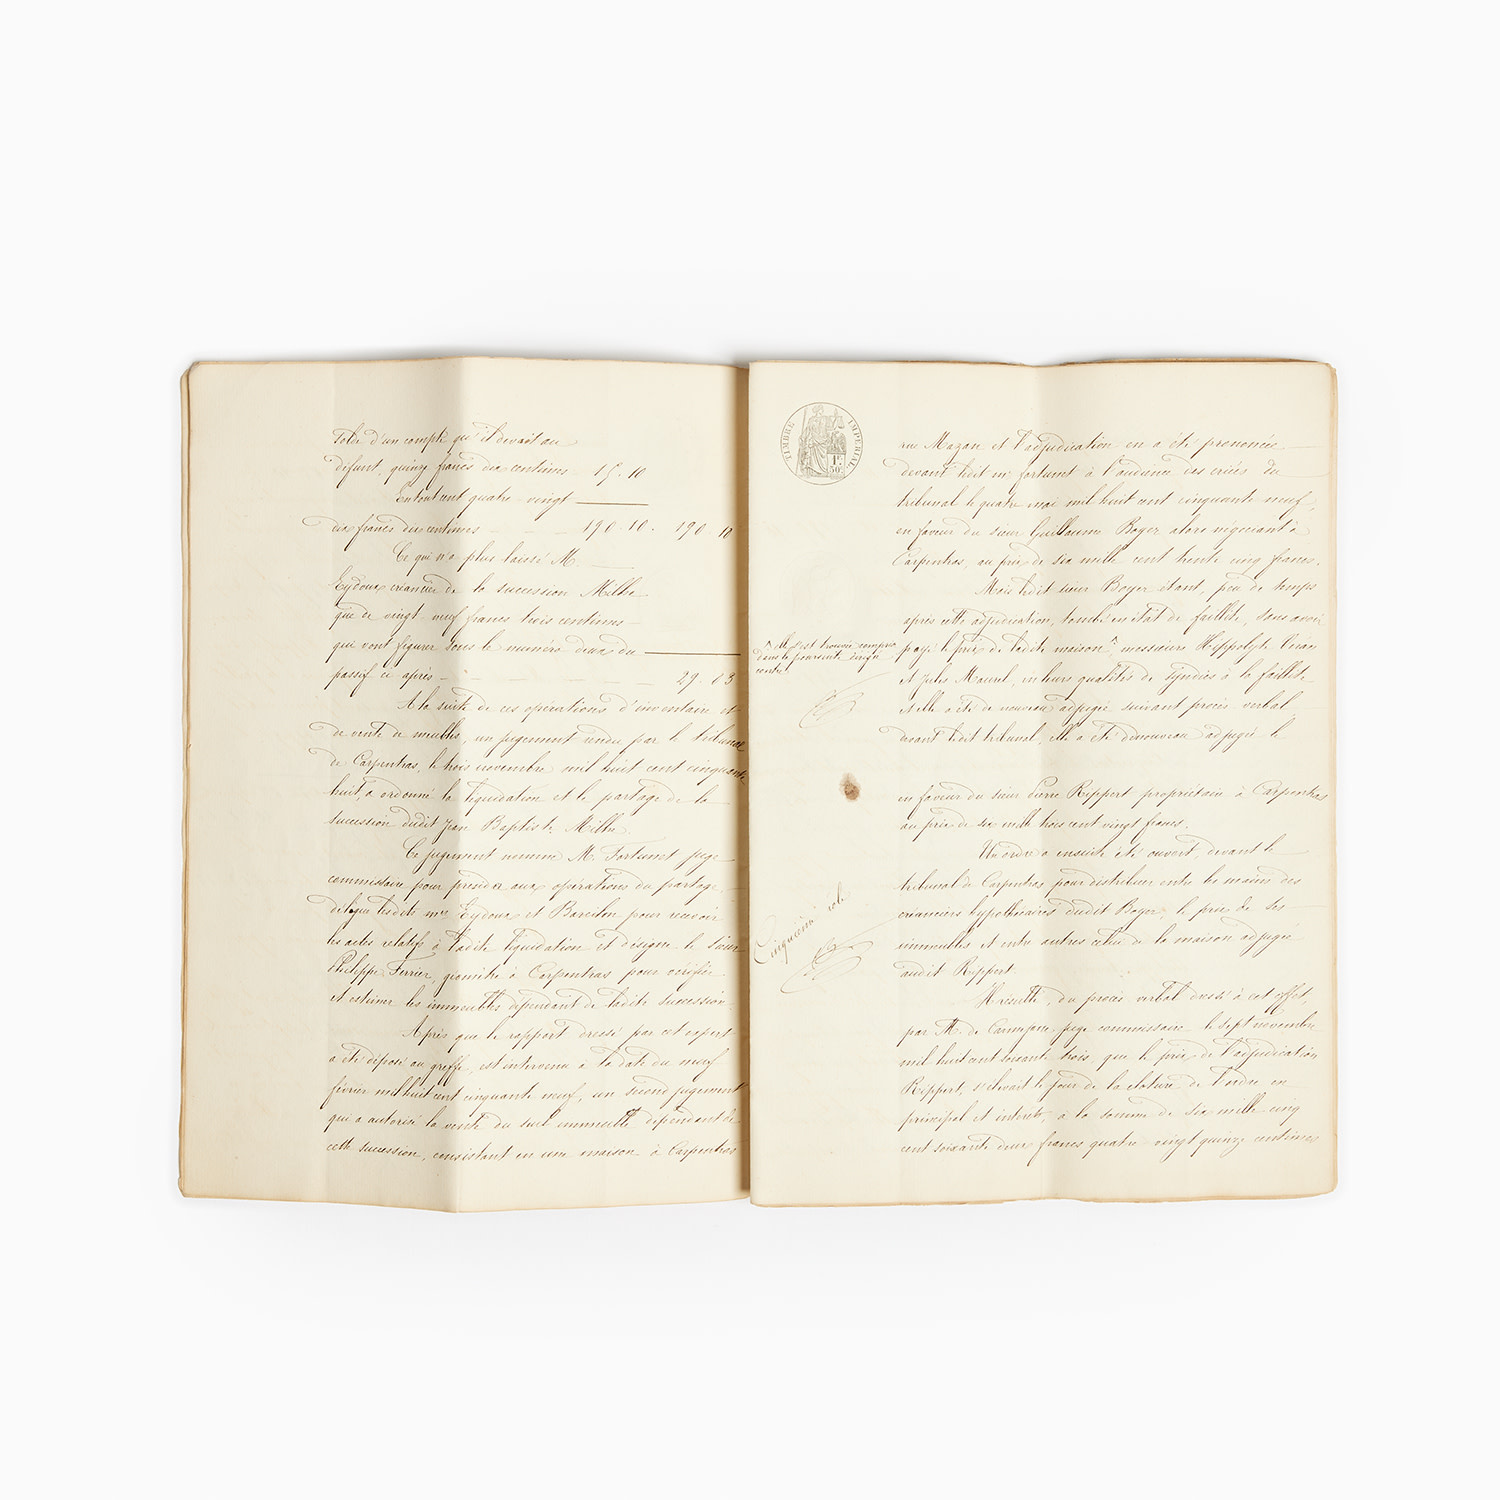 solde d'un compte qu'il devait au
défunt, quinze francs dix centimes 15. 10
En tout cent quatre-vingt
dix francs dix centimes 190. 10. 190 10
Ce qui n'a plus laissé M.
Eydoux créancier de la succession Milhe
que de vingt neuf francs trois centimes
qui vont figurer sous le numéro deux du
passif ci après 29. 03
A la suite de ces opérations d'inventaire et
de vente de meubles, un jugement rendu par le tribunal
de Carpentras, le trois novembre mil huit cent cinquante
huit, a ordonné la liquidation et le partage de la
succession dudit Jean Baptiste Milhe.
Ce jugement nomme M. Fortunet juge
commissaire pour procéder aux opérations du partage,
délègue lesdits mes Eydoux et Barcilon pour recevoir
les actes relatifs à ladite liquidation et désigne le sieur
Philippe Ferrier, géomètre à Carpentras pour vérifier
et estimer les immeubles dépendant de ladite succession.
Après que le rapport dressé par cet expert
a été déposé au greffe, est intervenu à la date du neuf
février mil huit cent cinquante neuf, un second jugement
qui a autorisé la vente du seul immeuble dépendant de
cette succession, consistant en une maison à Carpentras
TIMBRE IMPERIAL
1F. 50c.
rue Mazan et l'adjudication en a été prononcée
devant ledit mr fortunet à l'audience des criées du
tribunal le quatre mai mil huit cent cinquante neuf,
en faveur du sieur Guillaume Boyer alors négociant à
Carpentras, au prix de six mille cent trente cinq francs.
Mais ledit sieur Boyer étant, peu de temps
après cette adjudication, tombé en état de faillite, sans avoir
payé le prix de ladite maison ^, messieurs Hippolyte
et Jules Maurel, en leurs qualités de syndics à la faillite
et elle a été de nouveau adjugée suivant procès-verbal
devant ledit tribunal, elle a été de nouveau adjugée le
^ elle s'est trouvée comprise
dans la poursuite dirigée
contre
en faveur du sieur Pierre Rippert propriétaire à Carpentras
au prix de six mille trois cent vingt francs.
Un ordre a ensuite été ouvert, devant le
tribunal de Carpentras pour distribuer entre les mains des
créanciers hypothécaires dudit Boyer, le prix de ses
immeubles et entre autres celui de la maison adjugée
audit Rippert.
Cinquième rôle
Il résulte, du procès verbal dressé à cet effet,
par M. de juge commissaire le sept novembre
mil huit cent soixante trois, que le prix de l'adjudication
Rippert, s'élevait le jour de la clôture de l'ordre en
principal et intérêts, à la somme de six mille cinq
cent soixante deux francs quatre-vingt quinze centimes